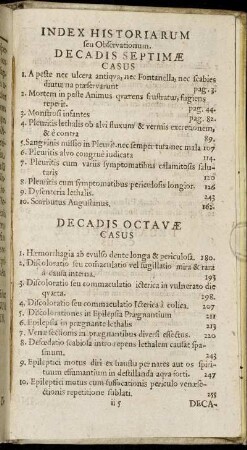 INDEX HISTORIARUM
seu Observationum.
DECADIS SEPTIMÆ
CASUS
1. A peste nec ulcera antiqva, nec Fontanella, nec scabies
diutina præservarunt pag. 3.
2. Mortem in peste Animus qværens frustratur, fugiens
reperit. pag.
3. Monstrosi infantes 82.
4. Pleuritis lethalis ob alvi fluxum & vermis excretionem,
& è contra 89.
5. Sangvinis missio in Pleurit. nec semper tuta nec mala 107
6. Pleuritis alvo congruè judicata 114.
7. Pleuritis cum variis symptomatibus calamitosis salu-
taris 120
8. Pleuritis cum symptomatibus periculosis longior. 126
9. Dysenteria lethalis. 143
10. Scorbutus Augustanus. 162.
DECADIS OCTAVÆ
CASUS
1. Hæmorrhagia ab evulso dente longa & periculosa. 180.
2. Discoloratio seu commaculatio vel sugillatio mira & rara
à causa interna. 193.
3. Discoloratio seu commaculatio icterica in vulnerato die
qvarta. 198.
4. Discoloratio seu commaculatio Icterica à colica. 207.
5. Decolorationes in Epilepsia Prægnantium
6. Epilepsia in prægnante lethalis
7. Venæsectiones in prægnantibus diversi effectus. 220.
8. Defœdatio scabiosa intro repens lethalem causat spa-
smum. 243
9. Epileptici motus diri ex haustu per nares aut os spiri-
tuum effumantium in destillanda aqva forti. 247
10. Epileptici motus cum suffocationis periculo venæse-
ctionis repetitione sublati. 255
ii 5 DECA-